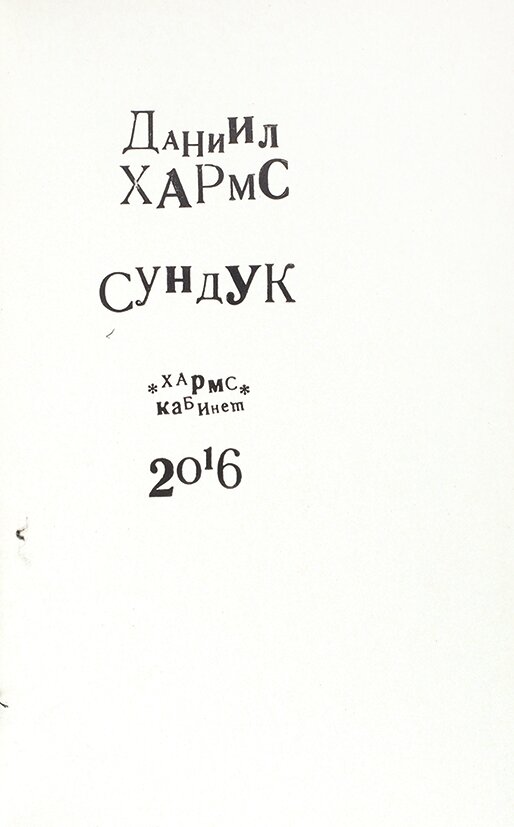 Даниил
ХАРмС
СУНДУК
*ХАРмС*
каБИнет
2016